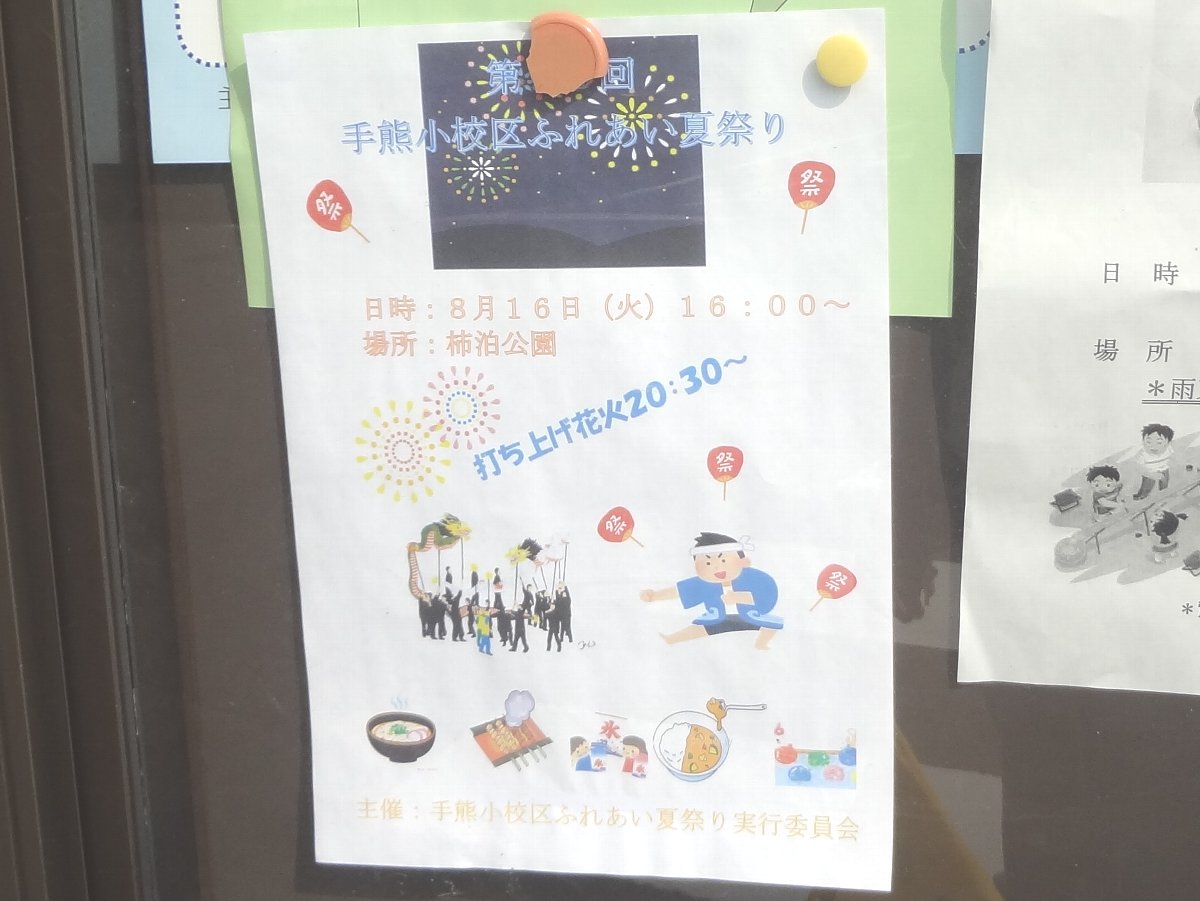 第 回
手熊小校区ふれあい夏祭り
祭
祭
日時：８月１６日（火）１６：００～
場所：柿泊公園
打ち上げ花火20:30～
祭
祭
祭
氷
主催：手熊小校区ふれあい夏祭り実行委員会
日 時
場 所
＊雨